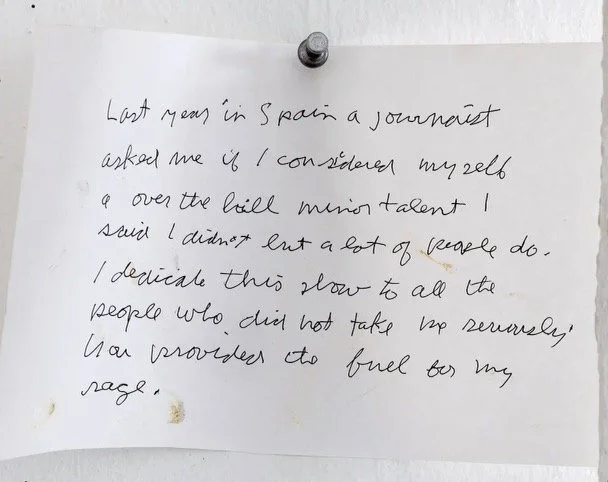 Last year in Spain a journalist
asked me if I considered myself
a over the hill minor talent I
said I didn't but a lot of people do.
I dedicate this show to all the
people who did not take me seriously.
You provided the fuel for my
rage.